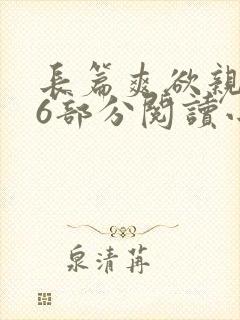 長篇爽欲親
6部分閱讀小
泉清苒